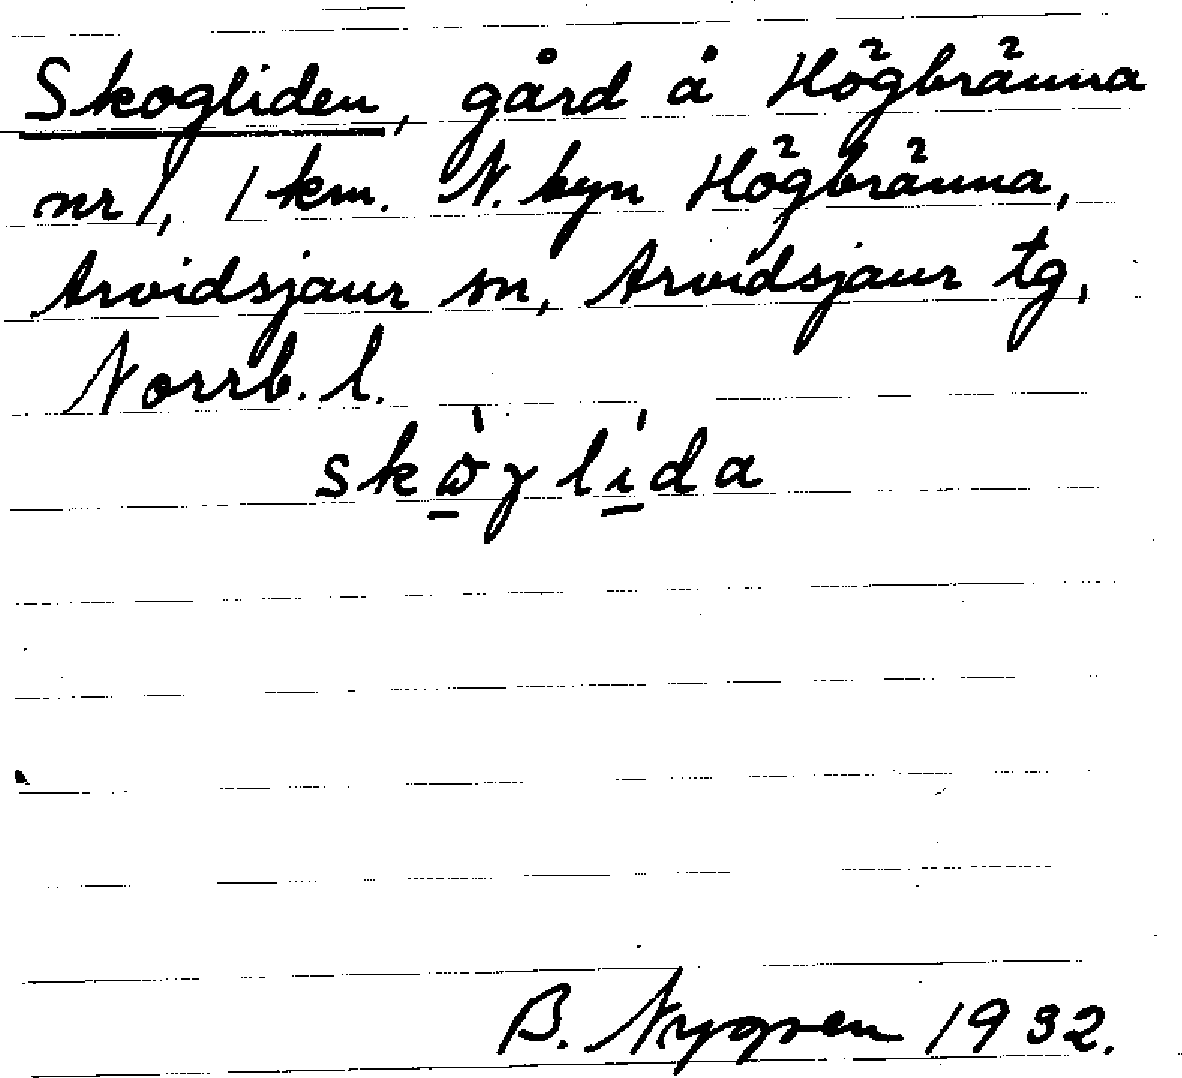 Skogliden, gård å Högbränna
nr 1, 1 km. N. byn Högbränna,
Arvidsjaur sn, Arvidsjaur tg,
Norrb. l.
skòɣlída
B. Nygren 1932.